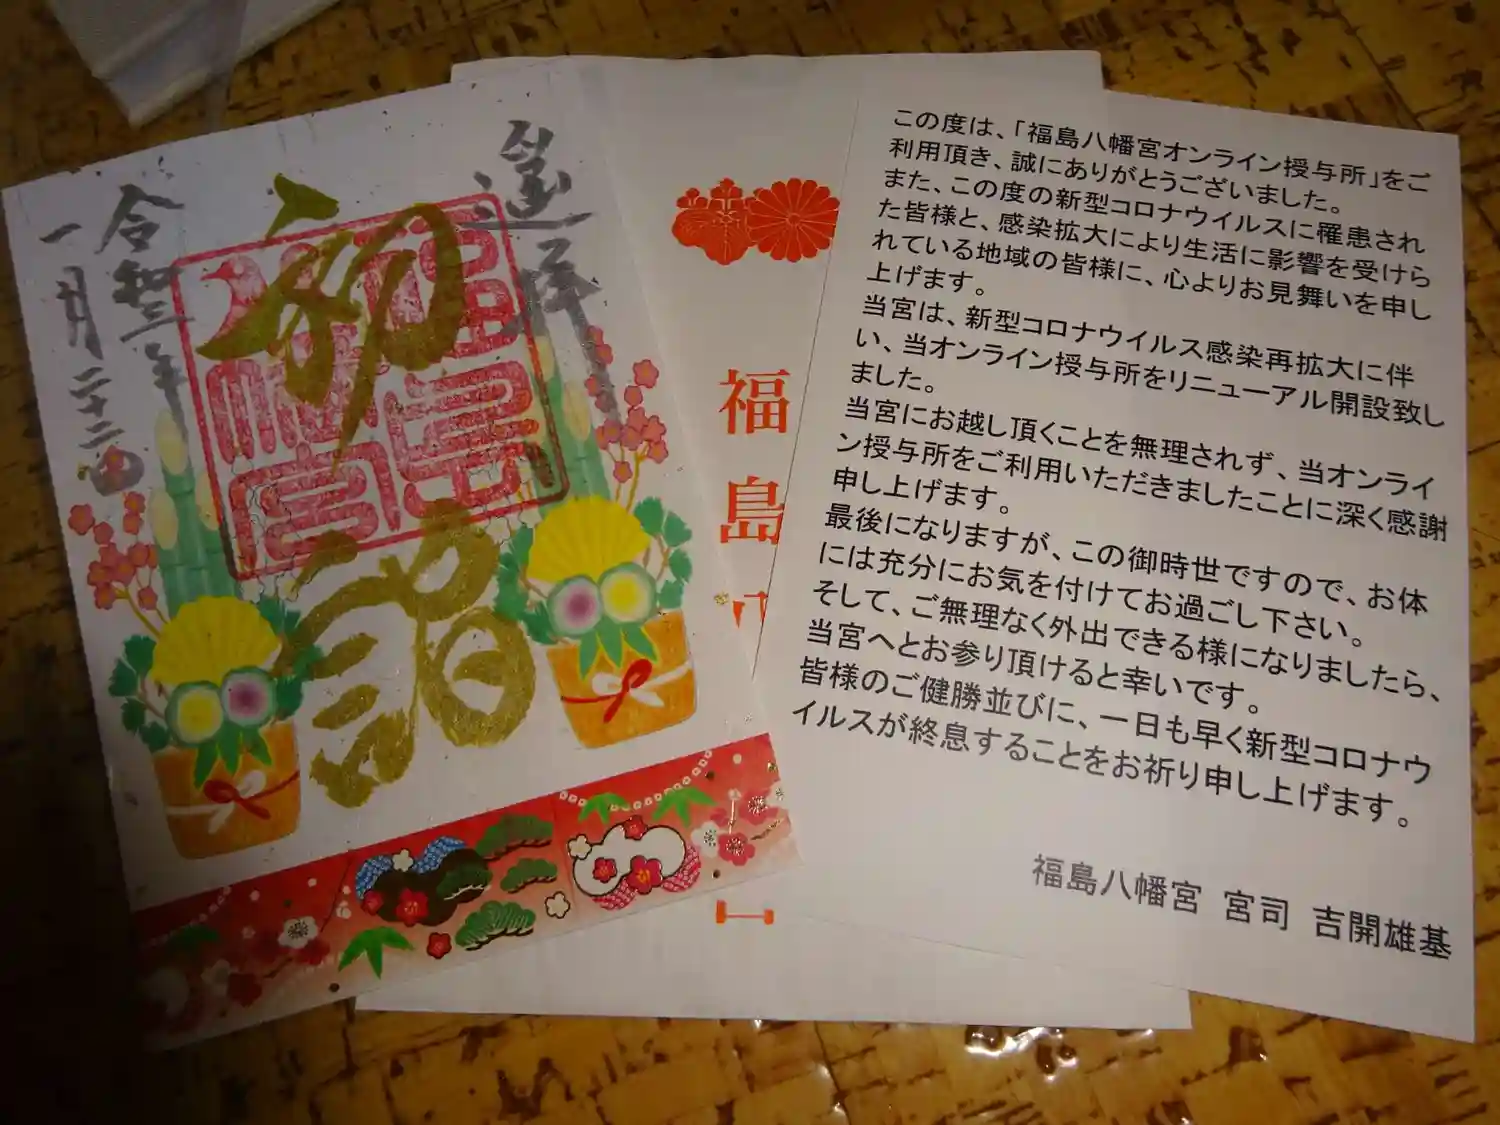 遥拝
初詣
福島八幡宮
令和三年
一月二十二日
福島八
この度は、「福島八幡宮オンライン授与所」をご
利用頂き、誠にありがとうございました。
また、この度の新型コロナウイルスに罹患され
た皆様と、感染拡大により生活に影響を受けら
れている地域の皆様に、心よりお見舞いを申し
上げます。
当宮は、新型コロナウイルス感染再拡大に伴
い、当オンライン授与所をリニューアル開設致し
ました。
当宮にお越し頂くことを無理されず、当オンライ
ン授与所をご利用いただきましたことに深く感謝
申し上げます。
最後になりますが、この御時世ですので、お体
には充分にお気を付けてお過ごし下さい。
そして、ご無理なく外出できる様になりましたら、
当宮へとお参り頂けると幸いです。
皆様のご健勝並びに、一日も早く新型コロナウ
イルスが終息することをお祈り申し上げます。
福島八幡宮 宮司 吉開雄基